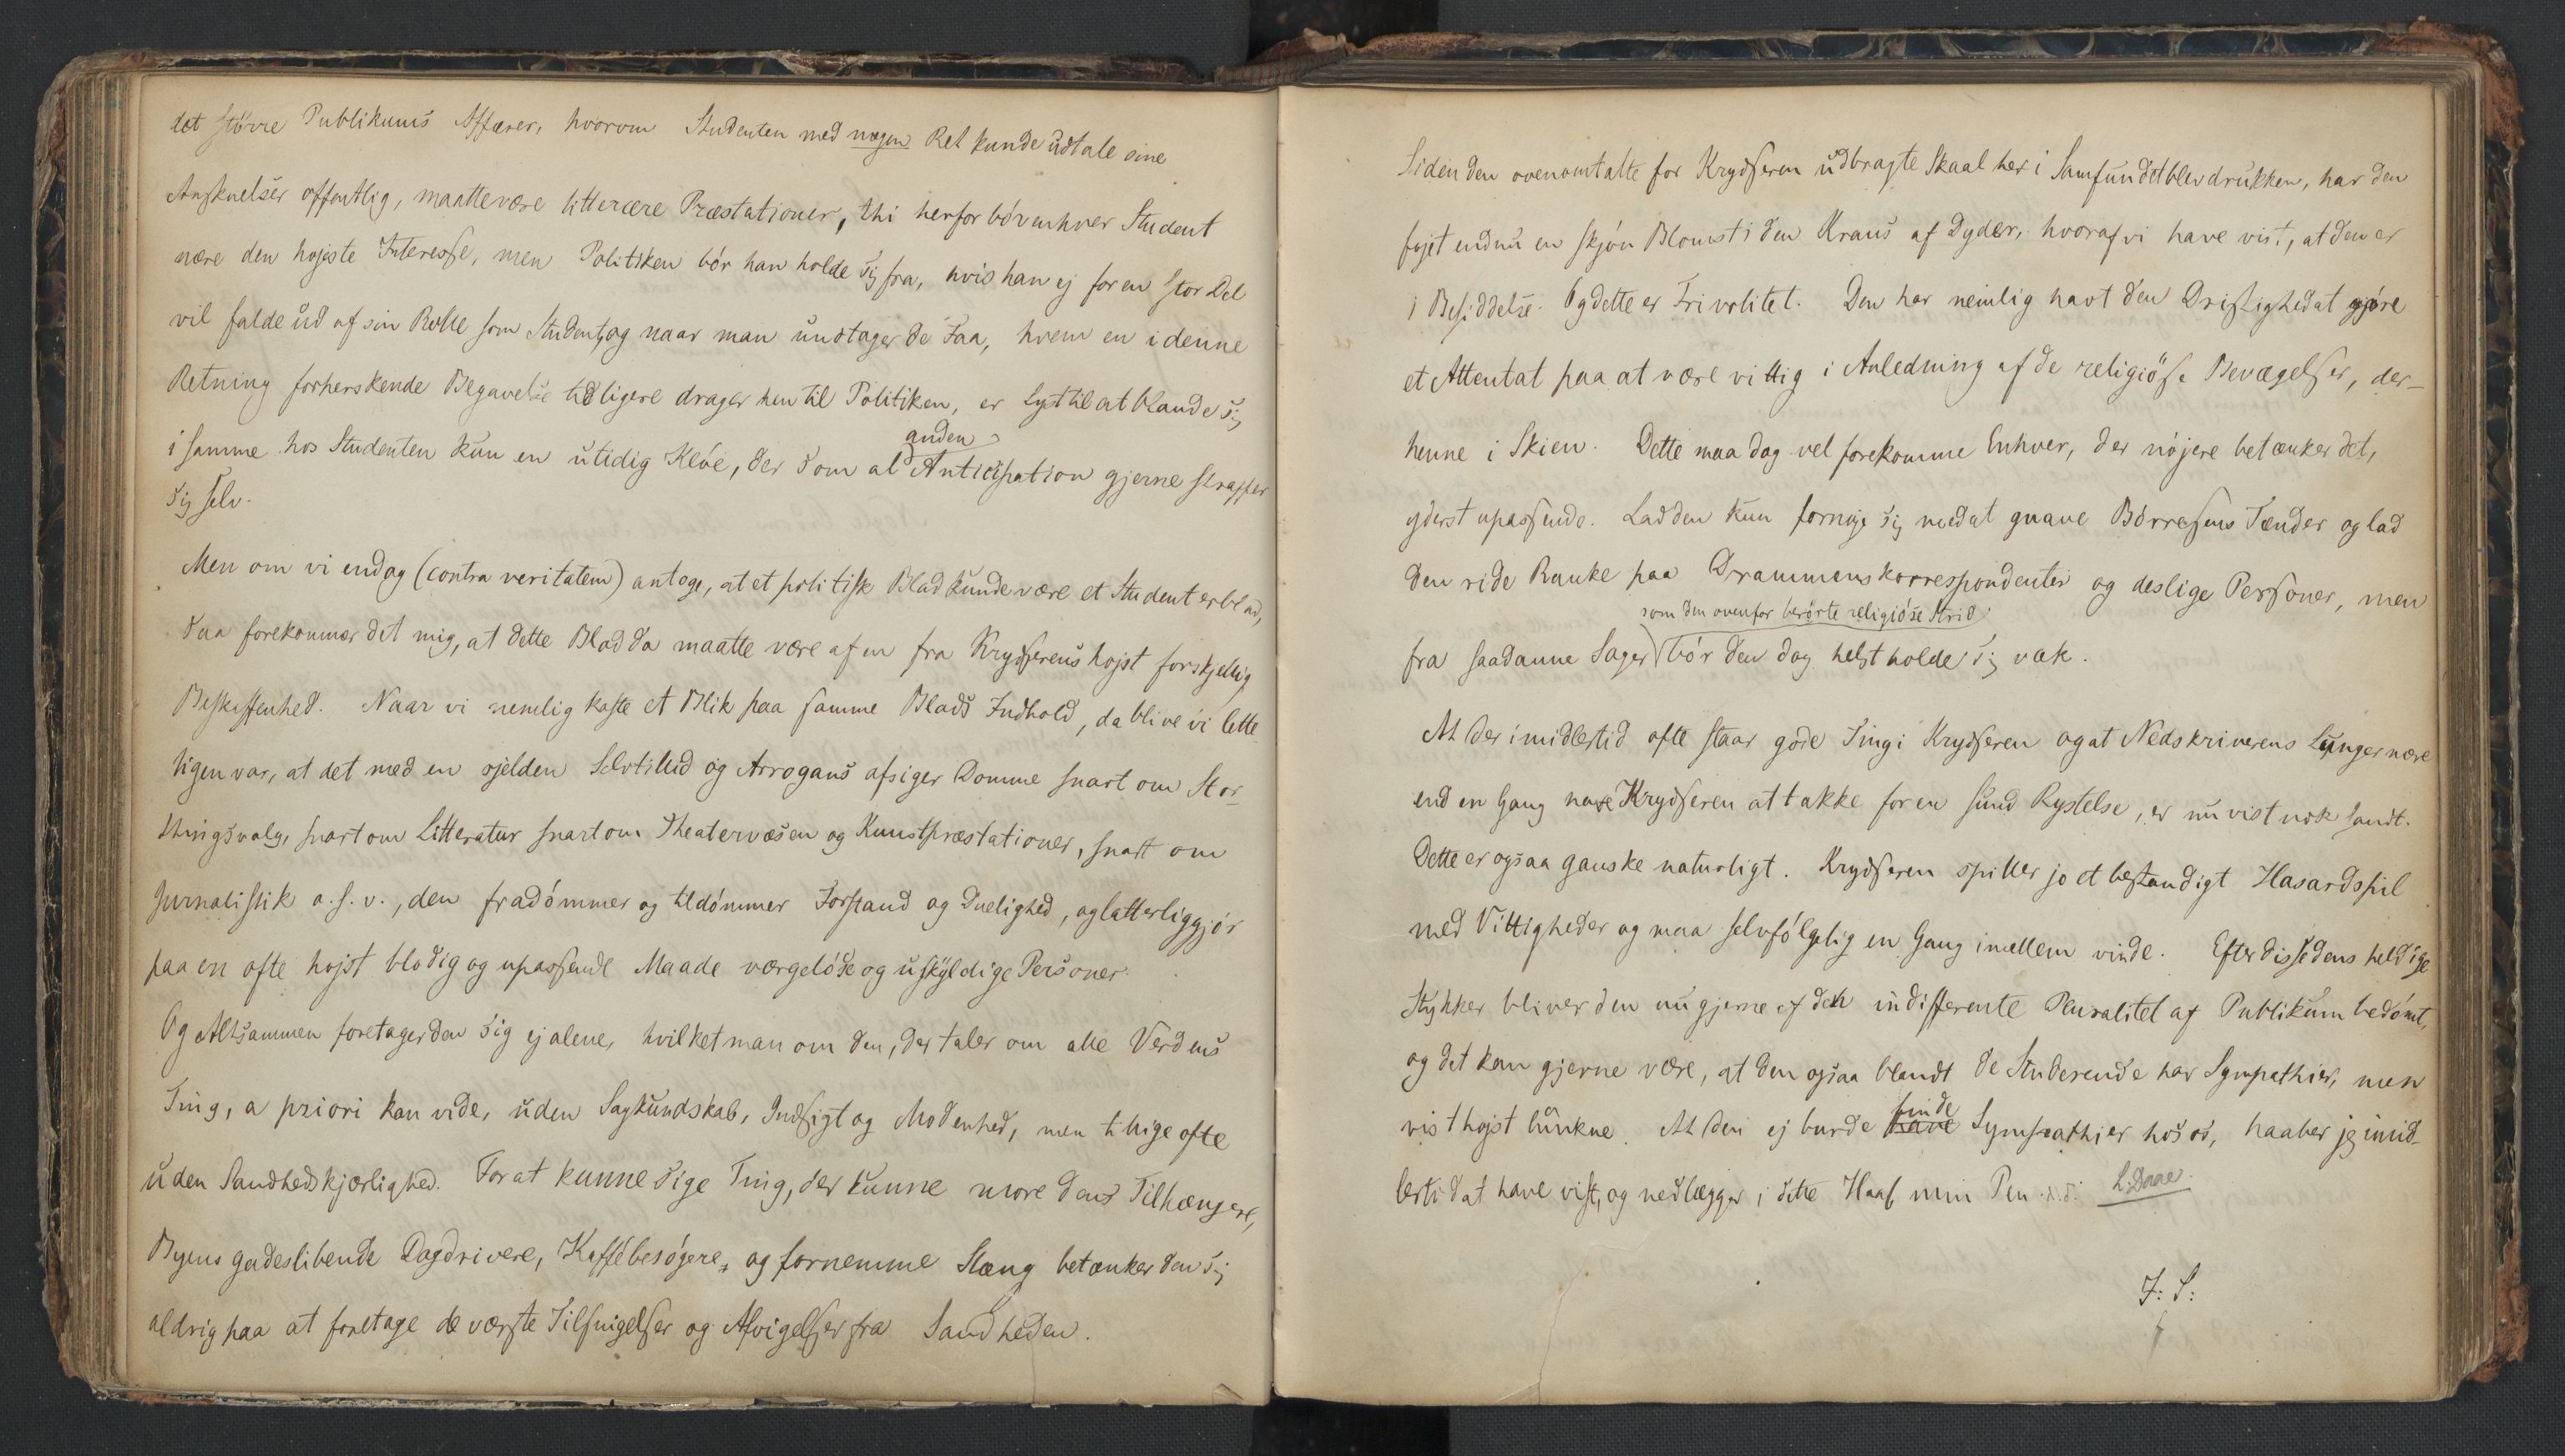 det större Publikums Affærer, hvorom Studenten med nogen Ret kunde udtale sine
Anskuelser offentlig, maatte være litterære Præstationer, thi herfor bör enhver Student
nære den højeste Interesse, men Politiken bör han holde sig fra, hvis han ej for en stor Del
vil falde ud af sin Rolle som Student, og naar man undtager de Faa, hvem en i denne
Retning forherskende Begavelse tidligere drager hen til Politiken, er Lyst til at blande sig
i samme hos Studenten kun en utidig Klöe, der som al anden Anticipation gjerne straffer
sig selv.
Men om vi endog (contra veritatem) antoge, at et politisk Blad kunde være et Studenterblad,
saa forekommer det mig, at dette Blad da maatte være af en fra Krydserens højst forskjellig
Beskaffenhed. Naar vi nemlig kaste et Blik paa samme Blads Indhold, da blive vi lette-
ligen var, at det med en sjelden Selvtillid og Arrogans afsiger Domme snart om Stor-
thingsvalg, snart om Litteratur snart om Theatervæsen og Kunstpræstationer, snart om
Jurnalistik o. s. v., den fradömmer og tildömmer Forstand og Duelighed, og latterliggjör
paa en ofte højst blodig og upassende Maade værgelöse og uskyldige Personer.
Og Altsammen foretager den sig ej alene, hvilket man om den, der taler om alle Verdens
Ting, a priori kan vide, uden Sagkundskab, Indsigt og Modenhed, men tillige ofte
uden Sandhedskjærlighed. For at kunne sige Ting, der kunne more dens Tilhængere,
Byens gadeslibende Dagdrivere, Kaffébesögere, og fornemme Slæng betænker den sig
aldrig paa at foretage de værste Tilsnigelser og Afvigelser fra Sandheden.
Siden den ovenomtalte for Krydseren udbragte Skaal her i Samfundet blev drukken, har den
föjet endnu en skjön Blomst i den Krans af Dyder, hvoraf vi have vist, at den er
i Besiddelse. Og dette er Frivolitet. Den har nemlig havt den Dristighed at gjöre
et Attentat paa at være vittig i Anledning af de religiöse Bevægelser, der-
henne i Skien. Dette maa dog vel forekomme Enhver, der nöjere betænker det,
yderst upassende. Lad den kun fornöje sig med at gnave Börresens Tænder og lad
den ride Ranke paa Drammenskorrespondenter og deslige Personer, men
som den ovenfor berörte religiöse Strid
fra saadanne Sager bör den dog helst holde sig væk.
At der imidlertid ofte staar gode Ting i Krydseren og at Nedskriverens Lunger mere
end en Gang have Krydseren at takke for en sund Rystelse, er nu vist nok sandt.
Dette er ogsaa ganske naturligt. Krydseren spiller jo et bestandigt Hasardspil
med Vittigheder og maa selvfölgelig en Gang imellem vinde. Efter disse dens heldige
Stykker bliver den nu gjerne af den indifferente Pluralitet af Publikum bedömt,
og det kan gjerne være, at den ogsaa blandt de Studerende har Sympathier, men
vist højst lunkne. At den ej burde have finde Sympathier hos os, haaber jeg imid-
lertid at have vist, og nedlægger i dette Haab min Pen. L. Daae.
J: S: